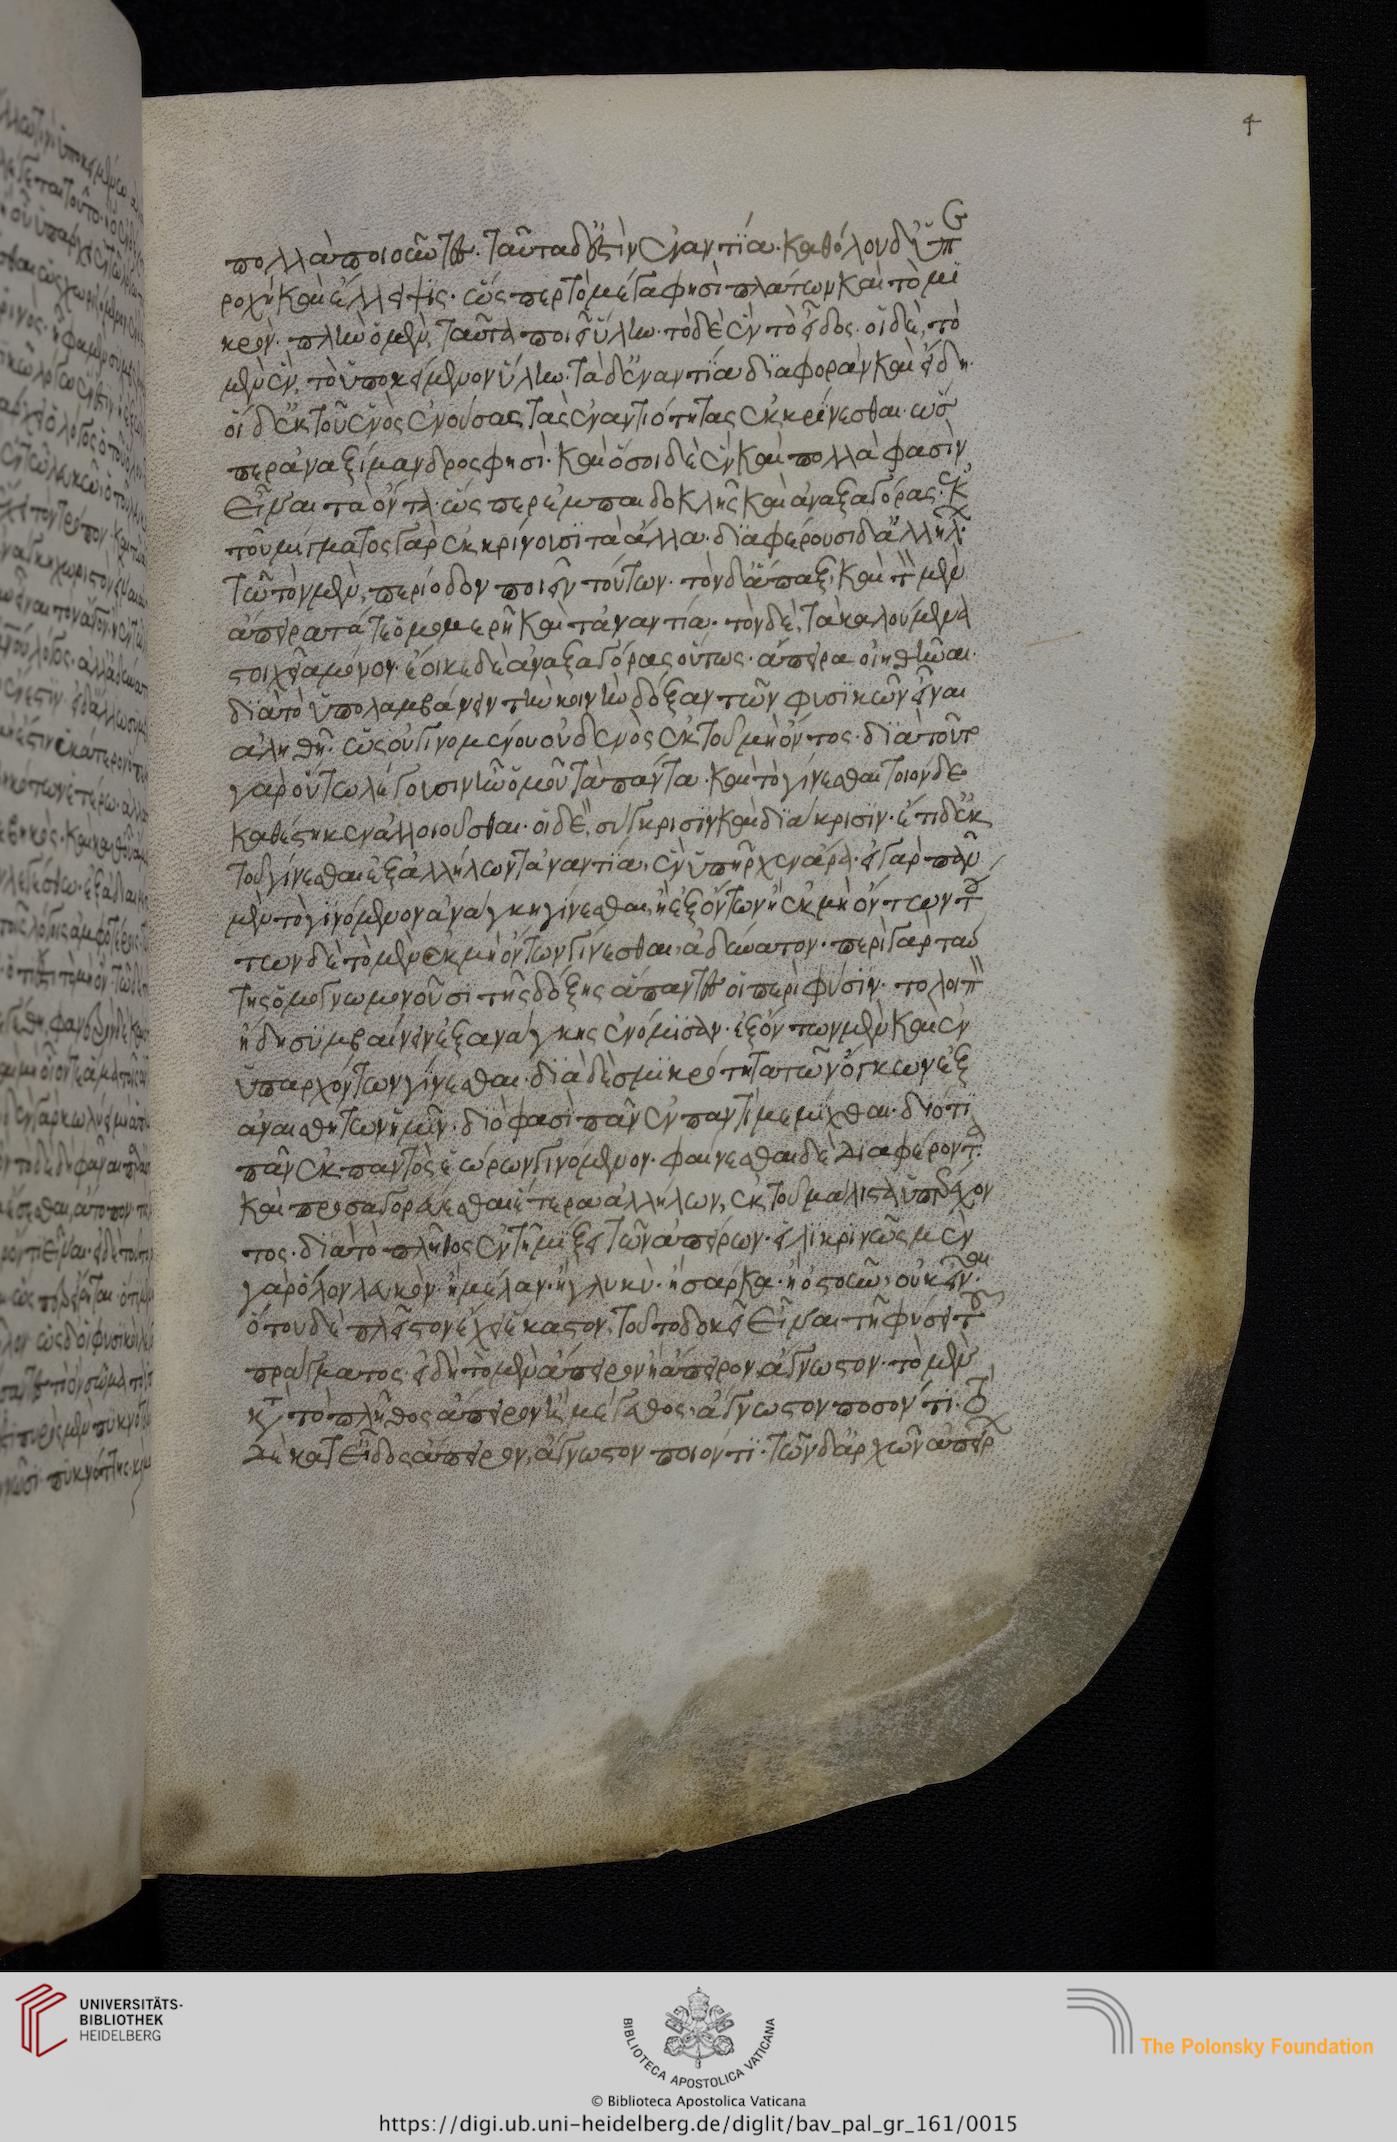 4
πολλὰ ποιοῦντες. ταῦτα δ' ἐστὶν ἐναντία. καθόλου δ' ὑπε
ροχὴ καὶ ἔλλειψις. ὥσπερ τὸ μέγα φησὶ πλάτων καὶ τὸ μι
κρόν. πλὴν ὁ μὲν, ταῦτα ποιεῖ ὕλην. τὸ δὲ ἓν τὸ εἶδος. οἱ δὲ, τὸ
μὲν ἓν, τὸ ὑποκείμενον ὕλην. τὰ δ' ἐναντία διαφορὰν καὶ εἴδη.
οἱ δ' ἐκ τοῦ ἑνὸς ἐνούσας τὰς ἐναντιότητας ἐκκρίνεσθαι. ὥσ
περ ἀναξίμανδρος φησί. καὶ ὅσοι δὲ ἓν καὶ πολλὰ φασὶν
εἶναι τὰ ὄντα. ὥσπερ ἐμπαιδοκλῆς καὶ ἀναξαγόρας. ἐκ
τοῦ μίγματος γὰρ ἐκκρίνουσι τὰ ἄλλα. διαφέρουσι δ' ἀλλήλων.
τῶ τὸν μὲν, περίοδον ποιεῖν τούτων. τὸν δ' ἅπαξ. καὶ τὸν μὲν
ἄπειρα τά τε ὁμοιομερῆ καὶ τἀναντία. τὸν δὲ, τὰ καλούμενα
στοιχεῖα μόνον. ἔοικε δὲ ἀναξαγόρας οὕτως. ἄπειρα οἰηθῆναι.
διὰ τὸ ὑπολαμβάνειν τὴν κοινὴν δόξαν τῶν φυσικῶν εἶναι
ἀληθῆ. ὡς οὐ γινομένου οὐδενὸς ἐκ τοῦ μὴ ὄντος. διὰ τοῦτο
γὰρ οὕτω λέγουσιν ἦν ὁμοῦ τὰ πάντα. καὶ τὸ γίνεσθαι τοιόνδε
καθέστηκεν ἀλλοιοῦσθαι. οἱ δὲ, σύγκρισιν καὶ διάκρισιν. ἔτι δ' ἐκ
τοῦ γίνεσθαι ἐξ ἀλλήλων τἀναντία. ἐνυπῆρχεν ἄρα. εἰ γὰρ πᾶν
μὲν τὸ γινόμενον ἀνάγκη γίνεσθαι, ἢ ἐξ ὄντων ἢ ἐκ μὴ ὄντων. τού
των δὲ τὸ μὲν ἐκ μὴ ὄντων γίνεσθαι, ἀδύνατον. περὶ γὰρ ταύ
της ὁμογνωμονοῦσι τῆς δόξης ἅπαντες οἱ περὶ φύσιν. τὸ λοιπὸν
ἤδη συμβαίνειν ἐξ ἀνάγκης ἐνόμισαν. ἐξ ὄντων μὲν καὶ ἐν
ὑπαρχόντων γίνεσθαι. διὰ δὲ σμικρότητα τῶν ὄγκων ἐξ
ἀναισθήτων ἡμῖν. διό φασι πᾶν ἐν παντὶ μεμίχθαι. διότι
πᾶν ἐκ παντὸς ἑώρων γινόμενον. φαίνεσθαι δὲ διαφέροντα.
καὶ προσαγορεύεσθαι ἕτερα ἀλλήλων, ἐκ τοῦ μάλιστα ὑπερέχον
τος. διὰ τὸ πλῆθος ἐν τῆ μίξει τῶν ἀπείρων. εἰλικρινῶς μὲν
γὰρ ὅλον λευκὸν. ἢ μέλαν. ἢ γλυκὺ. ἢ σάρκα. ἢ ὀστοῦν, οὐκ εἶναι.
ὅτου δὲ πλεῖστον ἔχει ἕκαστον, τοῦτο δοκεῖ εἶναι τὴν φύσιν τοῦ
πράγματος. εἰ δὴ τὸ μὲν ἄπειρον ἢ ἄπειρον ἄγνωστον. τὸ μὲν
κατὰ τὸ πλῆθος ἄπειρον ἢ μέγεθος. ἄγνωστον ποσόν τι. τὸ
δὲ κατ' εἶδος ἄπειρον, ἄγνωστον ποιόν τι. τῶν δ' ἀρχῶν ἀπείρων
UNIVERSITÄTS-
BIBLIOTHEK
HEIDELBERG
BIBLIOTECA APOSTOLICA VATICANA
© Biblioteca Apostolica Vaticana
The Polonsky Foundation
https://digi.ub.uni-heidelberg.de/diglit/bav_pal_gr_161/0015